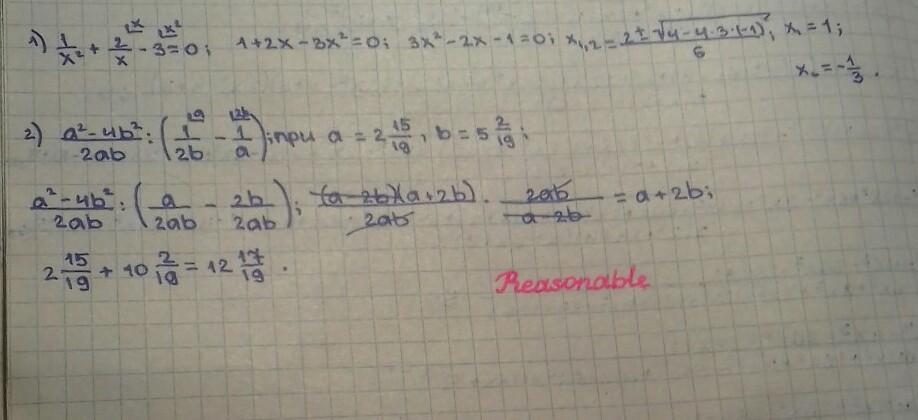 1) 1/x² + 2/x - 3 = 0; 1+2x-3x²=0; 3x²-2x-1=0; x₁,₂ = (2±√(4-4·3·(-1)))/6; x₁=1;
x₂=-1/3.
2) (a²-4b²)/2ab : (1/2b - 1/a); при a = 2 15/19, b = 5 2/19;
(a²-4b²)/2ab : (a/2ab - 2b/2ab); (a-2b)(a+2b)/2ab · 2ab/(a-2b) = a+2b;
2 15/19 + 10 2/19 = 12 17/19.
Reasonable